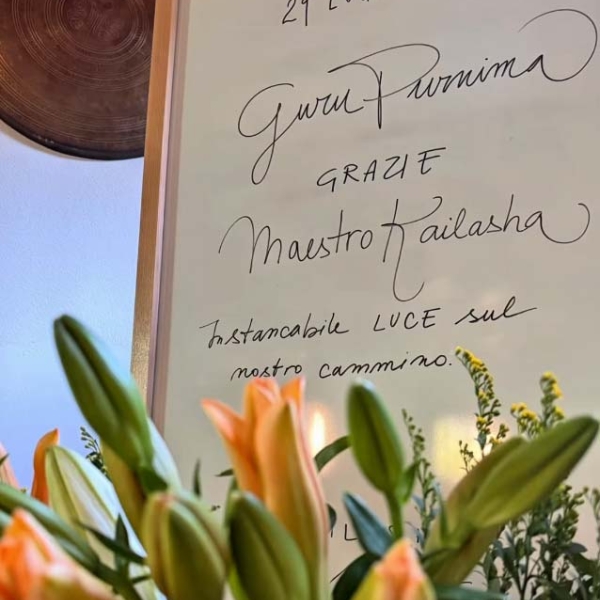 Guru Purnima
GRAZIE
Maestro Kailasha
Instancabile LUCE sul
nostro cammino.